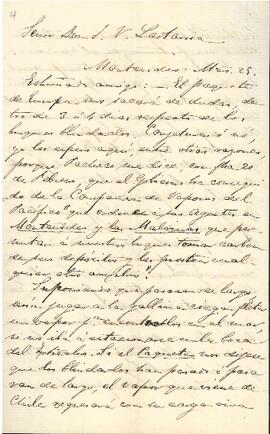 4
Señor Don J. V. Lastarria
Montevideo: Mzo. 25.
Estimado amigo: – El paquete
de Europa nos sacará de dudas, den-
tro de 3 ó 4 dias respecto de los
buques blindados. Conjeturo ó nó,
yo los espero aquí entre otras razones,
porque Pacheco me dice, con fha. 20
de Febrero, que el Gobierno ha conseguido
de la Compañia de Vapores del
Pacífico "que ordene a sus Agentes en
Montevideo y las Malvinas que per-
mitan a nuestros buques tomar carbon
de sus depósitos y les presten cual
quiera otro auxilio."
Suponiendo que pasaran de largo
seria jugar a la gallina ciega, fletar
un vapor pa. en el mar
si no irá á estacionarse en la boca
del Estrecho. Si el Paquete nos dijese
que los blindados han pasado ó pasa
ran de largo, el vapor que viene de
Chile regresará con su carga viva